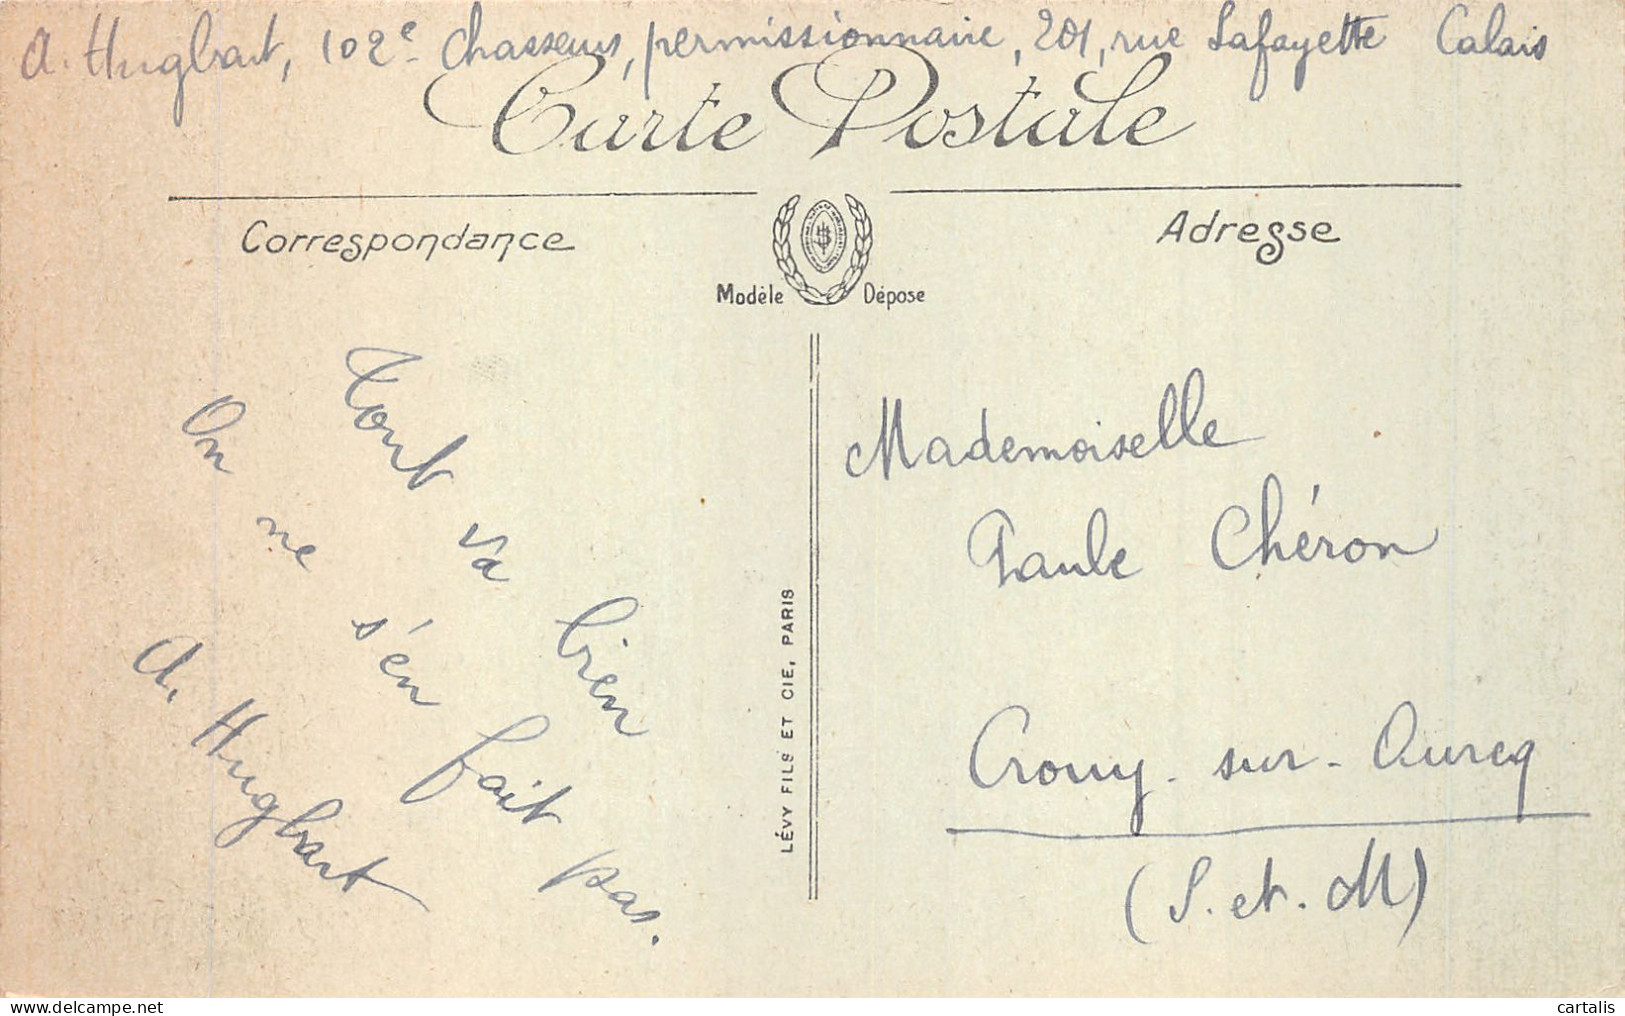 A. Huglart, 102e Chasseurs, permissionnaire, 201, rue Lafayette Calais
Carte Postale
Correspondance
Adresse
Modèle Déposé
Tout va bien
On ne s'en fait pas.
A. Huglart
LÉVY FILS ET CIE, PARIS
Mademoiselle
Paule Chéron
Crouy-sur-Ourcq
(S. et. M)
cartalis